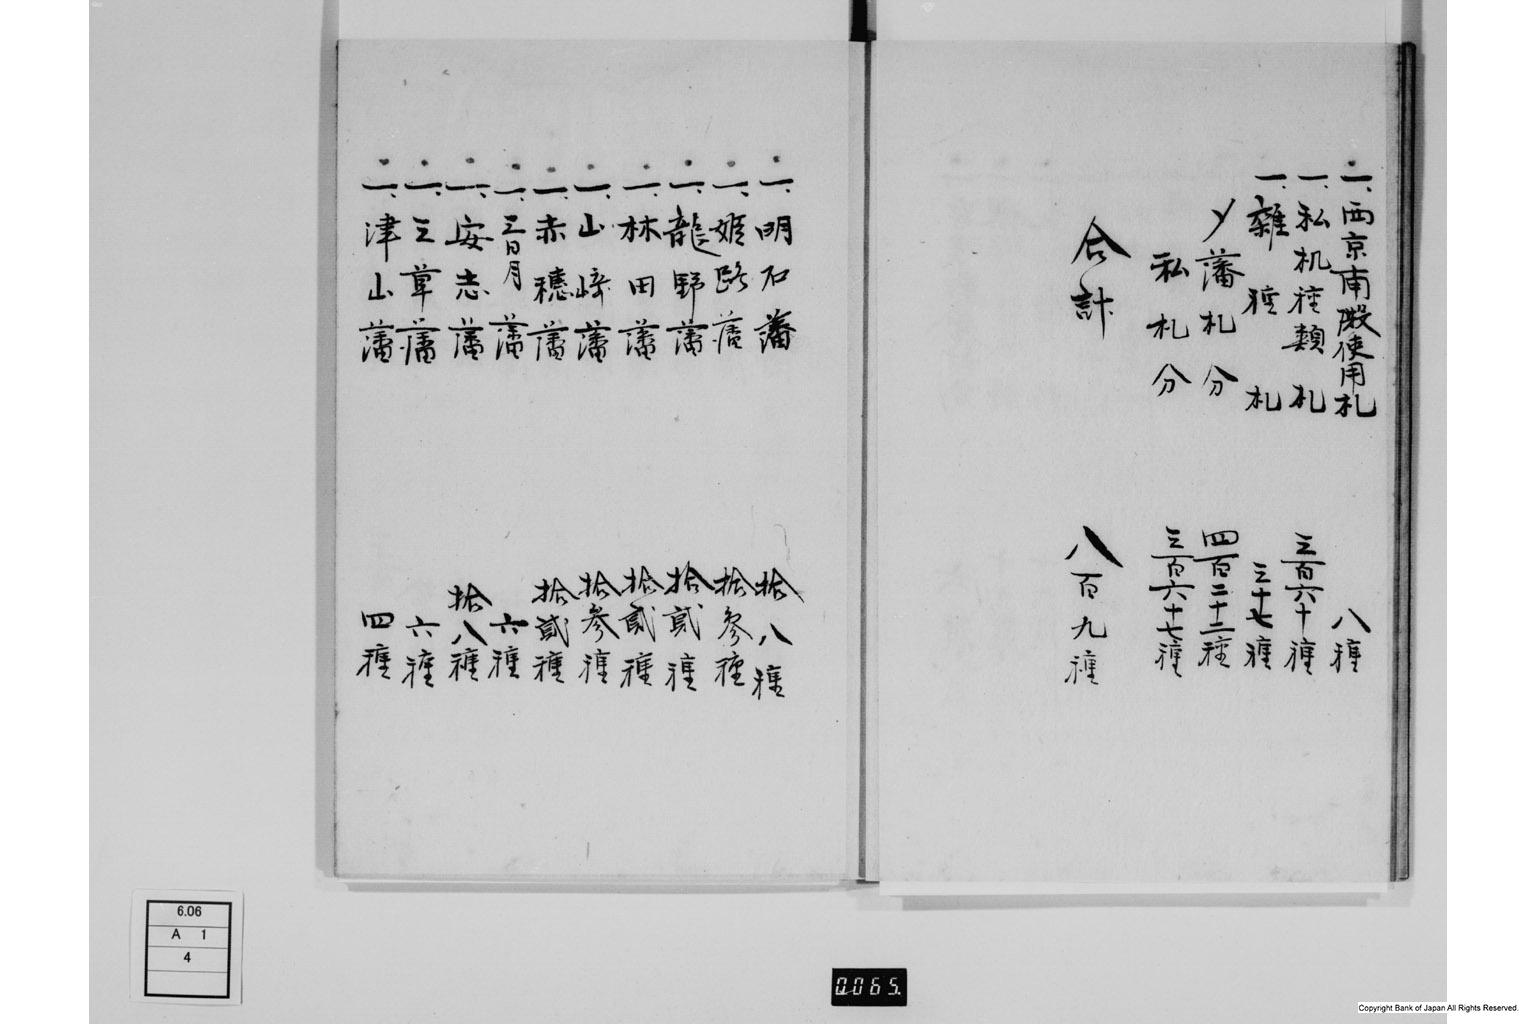 一、西京南殿使用札　八種
一、私札種類札　三百六十種
一、雑種札　三十七種
〆藩札分　四百二十二種
私札分　三百六十七種
合計　八百九種
一、明石藩　拾八種
一、姫路藩　拾参種
一、龍野藩　拾貳種
一、林田藩　拾貳種
一、山崎藩　拾参種
一、赤穂藩　拾貳種
一、三日月藩　六種
一、安志藩　拾八種
一、三草藩　六種
一、津山藩　四種
6.06
A 1
4
0065.
Copyright Bank of Japan All Rights Reserved.